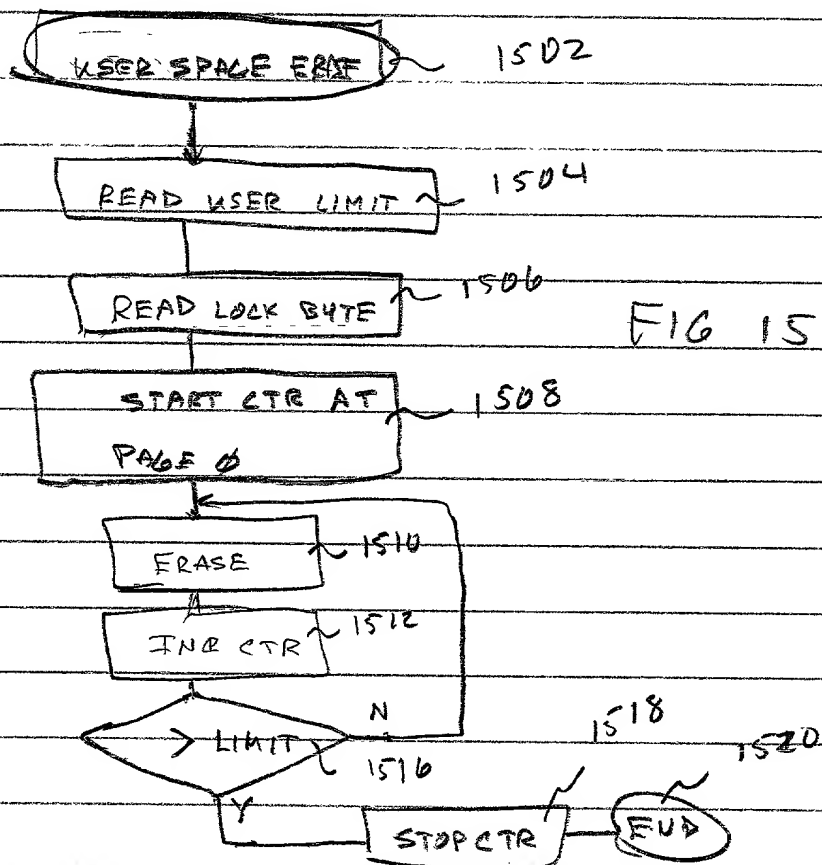 USER SPACE ERASE 1502
READ USER LIMIT 1504
READ LOCK BYTE 1506
FIG 15
START CTR AT 1508
PAGE 0
ERASE 1510
INC CTR 1512
N
> LIMIT 1516
1518
1520
Y
STOP CTR
END